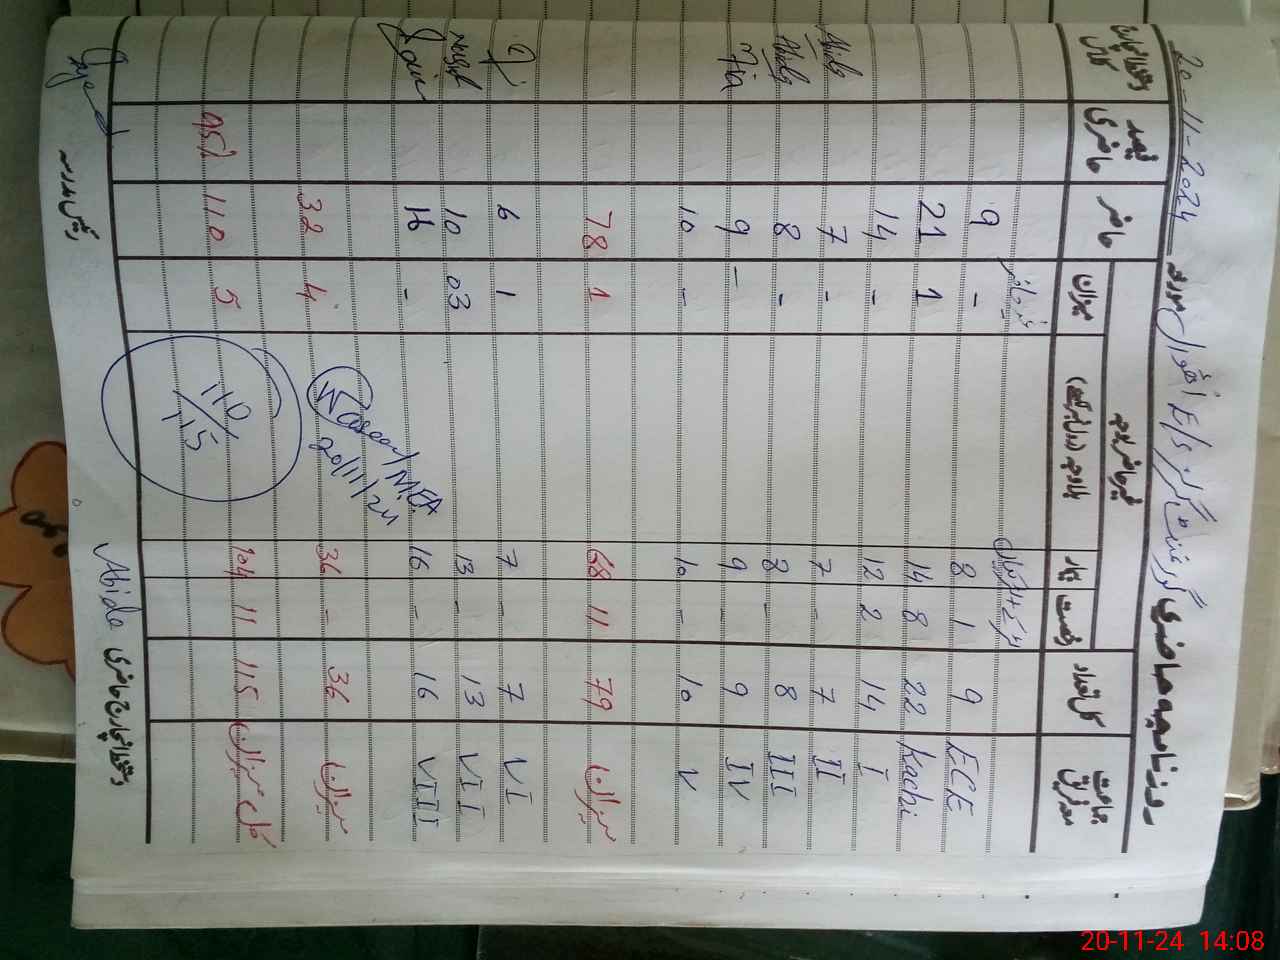 روزنامچہ حاضری گورنمنٹ گرلز E/S مورخہ 20-11-2024
جماعت معہ فریق | کل تعداد | رخصت | بیمار | غیر حاضر بلاوجہ | میزان | حاضر | فیصد حاضری | دستخط انچارج کلاس
غیر حاضر
ECE | 9 | 1 | 8 | - | 9
Kachi | 22 | 8 | 14 | 1 | 21
I | 14 | 2 | 12 | - | 14
II | 7 | - | 7 | - | 7 | Abida
III | 8 | - | 8 | - | 8 | Abida
IV | 9 | - | 9 | - | 9
V | 10 | - | 10 | - | 10
میزان | 79 | 11 | 68 | 1 | 78
VI | 7 | - | 7 | 1 | 6
VII | 13 | - | 13 | 03 | 10
VIII | 16 | - | 16 | - | 16
میزان | 36 | - | 36 | 4 | 32
Waseem/MEA
20/11/24
کل میزان | 115 | 11 | 104 | 5 | 110 | 95%
110/115
دستخط انچارج حاضری Abida رئیس مدرسہ
20-11-24 14:08